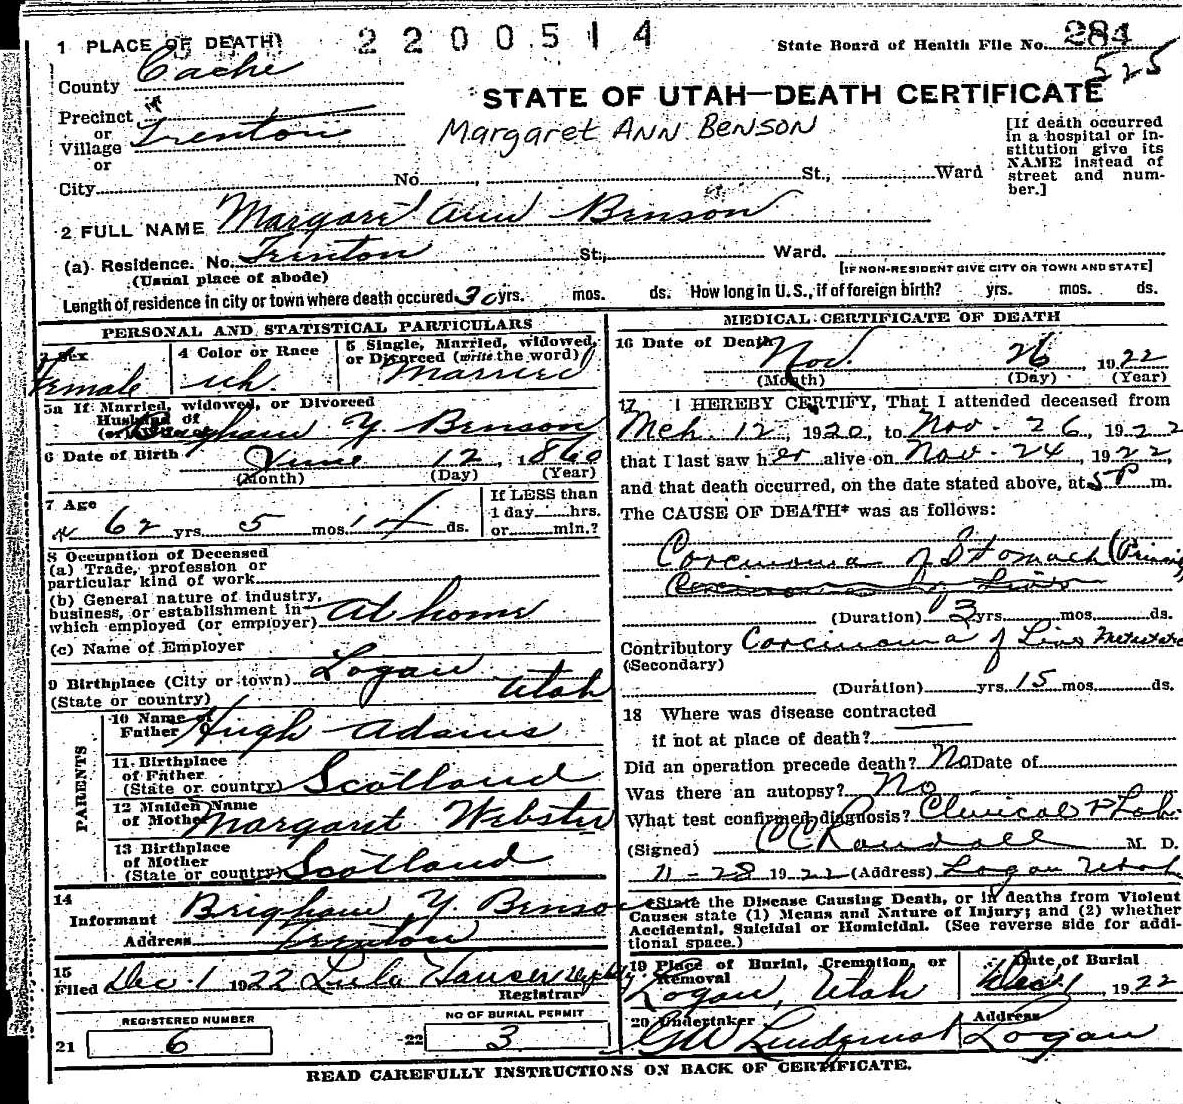 1 PLACE OF DEATH
2200514
State Board of Health File No. 284
525
County Cache
STATE OF UTAH—DEATH CERTIFICATE
Precinct
or
Village Trenton
or
Margaret Ann Benson
[If death occurred
in a hospital or in-
stitution give its
NAME instead of
street and num-
ber.]
City No. St., Ward
2 FULL NAME Margaret Ann Benson
(a) Residence. No. Trenton St., Ward.
(Usual place of abode)
[IF NON-RESIDENT GIVE CITY OR TOWN AND STATE]
Length of residence in city or town where death occured 30 yrs. mos. ds. How long in U.S., if of foreign birth? yrs. mos. ds.
PERSONAL AND STATISTICAL PARTICULARS
3 Sex
Female
4 Color or Race
wh.
5 Single, Married, widowed,
or Divorced (write the word)
Married
5a If Married, widowed, or Divorced
Husband of
Brigham Y. Benson
6 Date of Birth June 12, 1860
(Month) (Day) (Year)
7 Age
62 yrs. 5 mos. 14 ds.
If LESS than
1 day hrs.
or min.?
8 Occupation of Deceased
(a) Trade, profession or
particular kind of work
(b) General nature of industry,
business, or establishment in
which employed (or employer) At home
(c) Name of Employer
9 Birthplace (City or town) Logan
(State or country) Utah
PARENTS
10 Name of
Father Hugh Adams
11 Birthplace
of Father
(State or country) Scotland
12 Maiden Name
of Mother Margaret Webster
13 Birthplace
of Mother
(State or country) Scotland
14
Informant Brigham Y. Benson
Address Trenton
15
Filed Dec. 1 1922 Lula Hauser
Registrar
REGISTERED NUMBER
21 6
NO OF BURIAL PERMIT
22 3
MEDICAL CERTIFICATE OF DEATH
16 Date of Death Nov. 26 1922
(Month) (Day) (Year)
17 I HEREBY CERTIFY, That I attended deceased from
Mch. 12, 1920, to Nov. 26, 1922
that I last saw her alive on Nov. 24, 1922,
and that death occurred, on the date stated above, at 5 P m.
The CAUSE OF DEATH* was as follows:
Carcinoma of Stomach
(Duration) 3 yrs. mos. ds.
Contributory Carcinoma of Liver
(Secondary)
(Duration) yrs. 15 mos. ds.
18 Where was disease contracted
if not at place of death?
Did an operation precede death? No Date of
Was there an autopsy? No
What test confirmed diagnosis? Clinical & Lab.
(Signed) CC Randall M. D.
11-28 1922 (Address) Logan Utah
*State the Disease Causing Death, or in deaths from Violent
Causes state (1) Means and Nature of Injury; and (2) whether
Accidental, Suicidal or Homicidal. (See reverse side for addi-
tional space.)
19 Place of Burial, Cremation, or
Removal
Logan, Utah
Date of Burial
Dec 1, 1922
20 Undertaker
GW Lindquist
Address
Logan
READ CAREFULLY INSTRUCTIONS ON BACK OF CERTIFICATE.